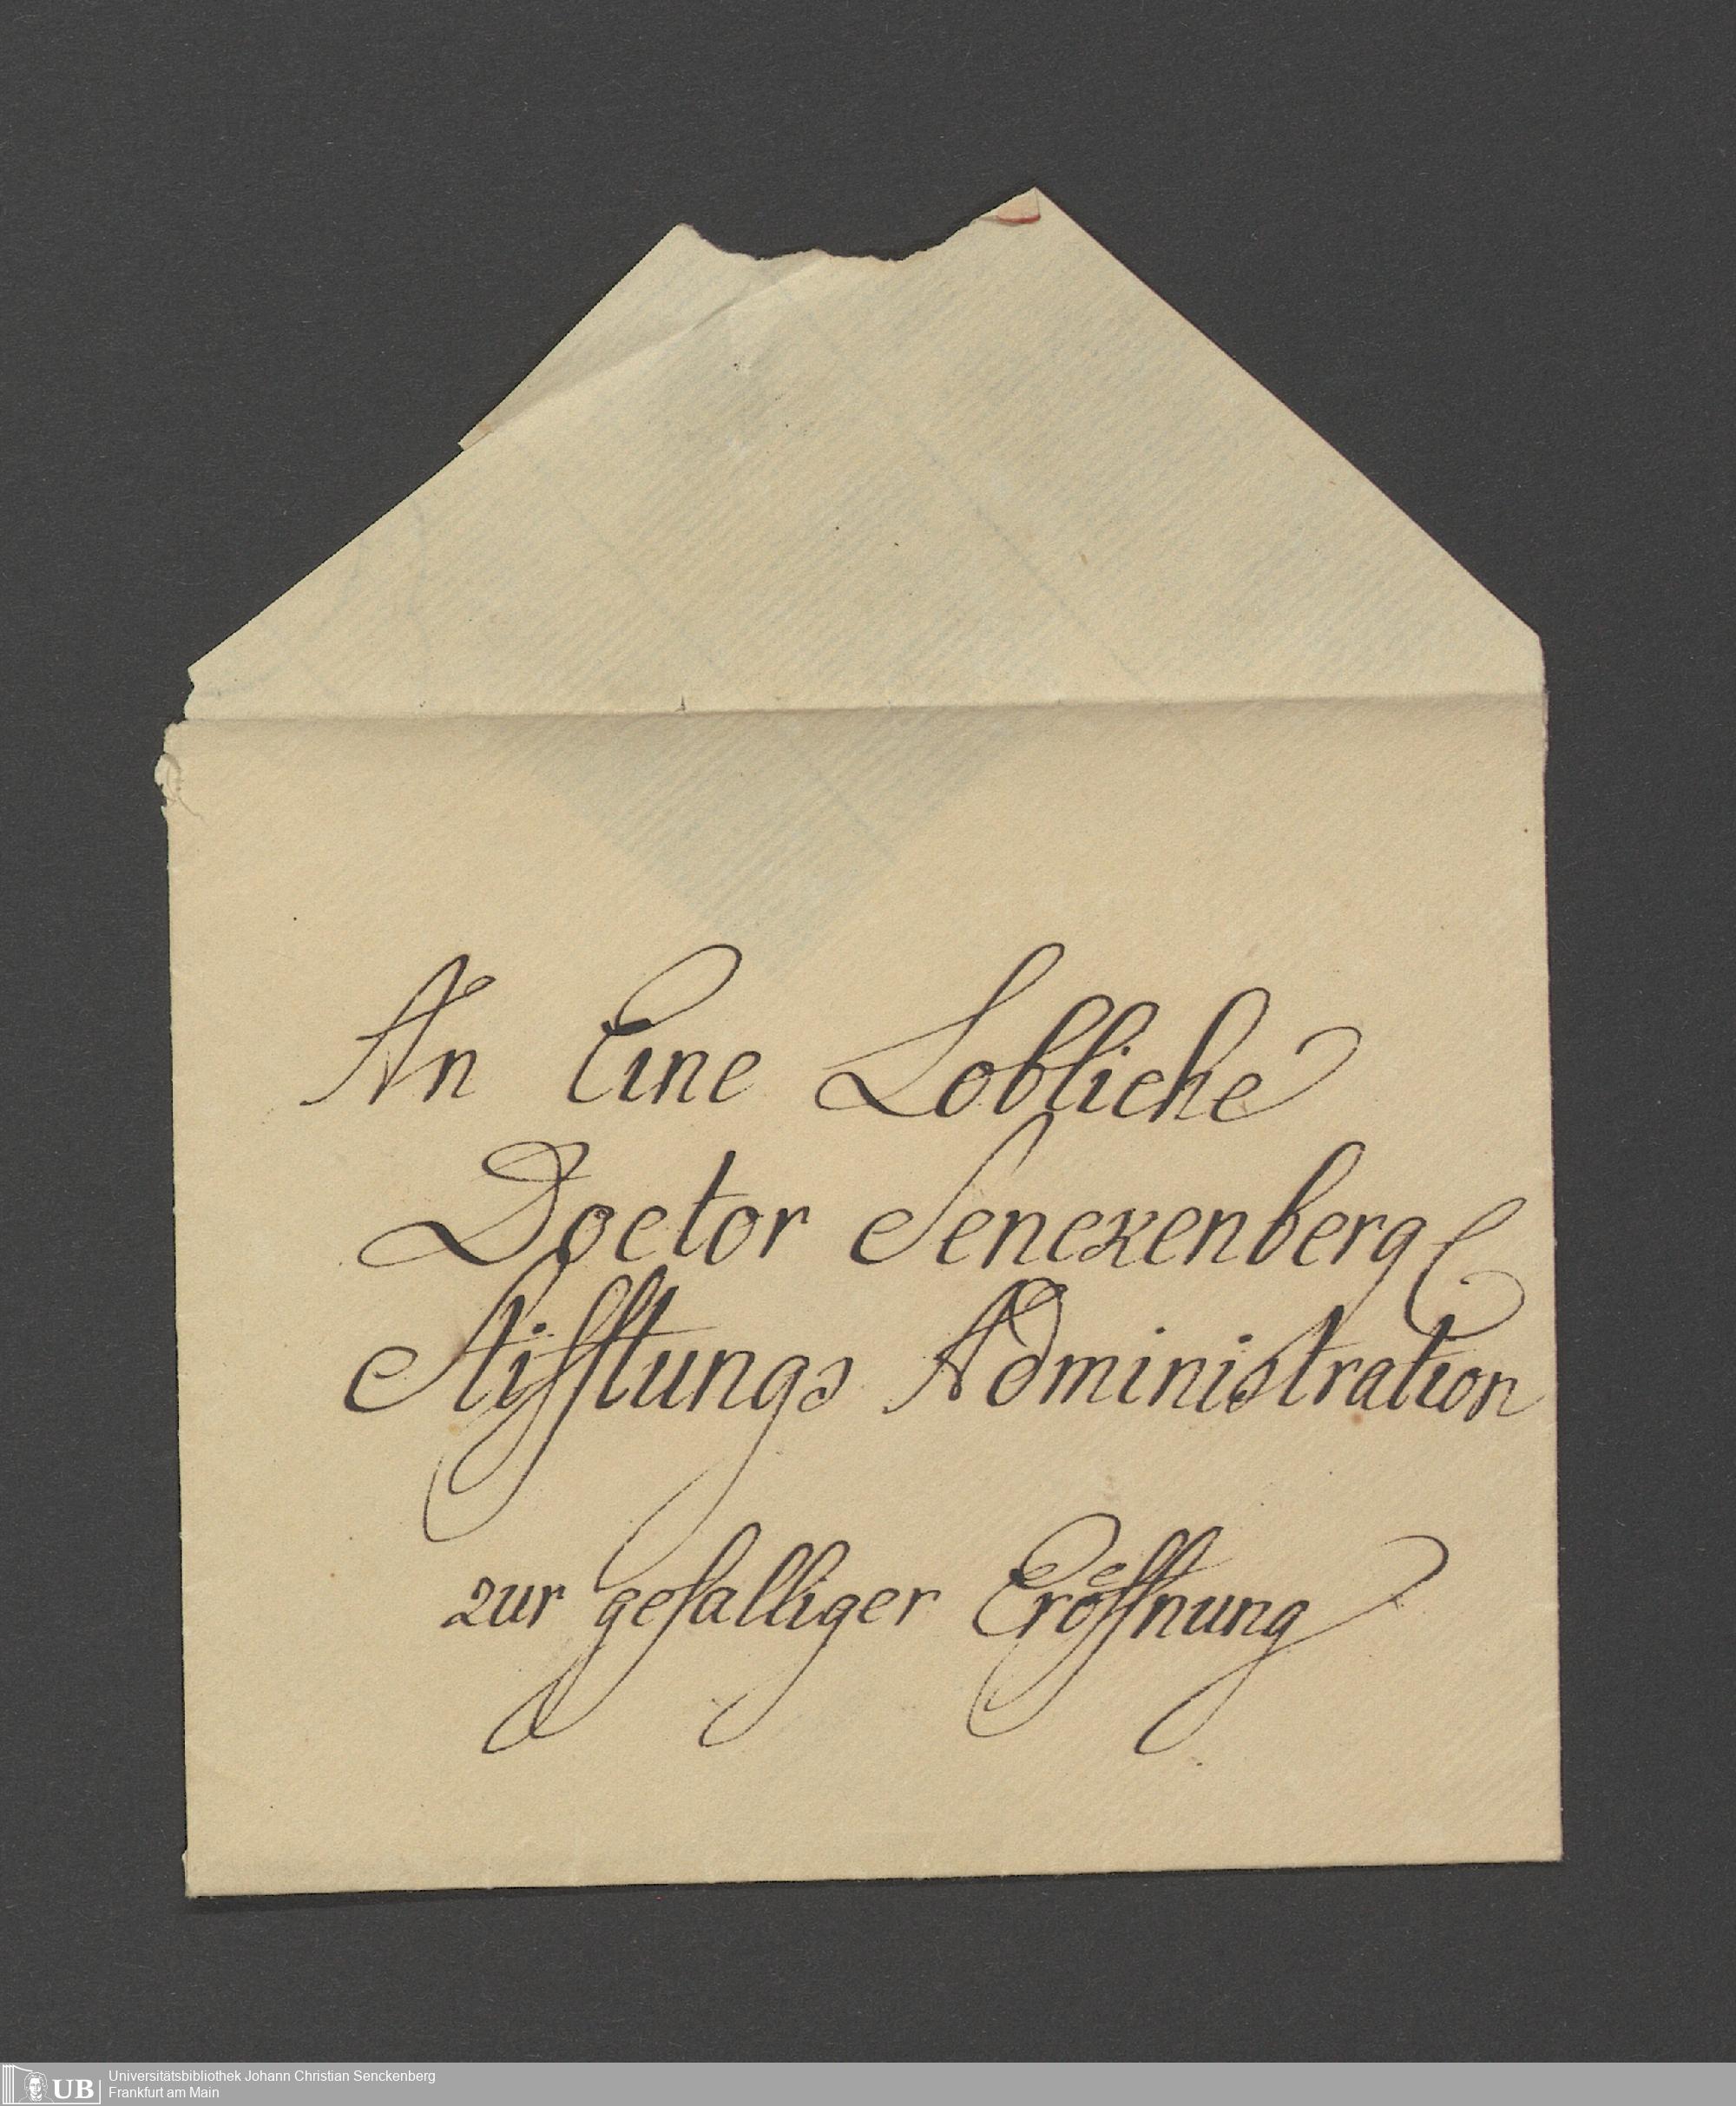 An Eine Lobliche
Doctor Senckenberg
Stifftungs Administration
zur gefalliger Eröffnung
UB
Universitätsbibliothek Johann Christian Senckenberg
Frankfurt am Main